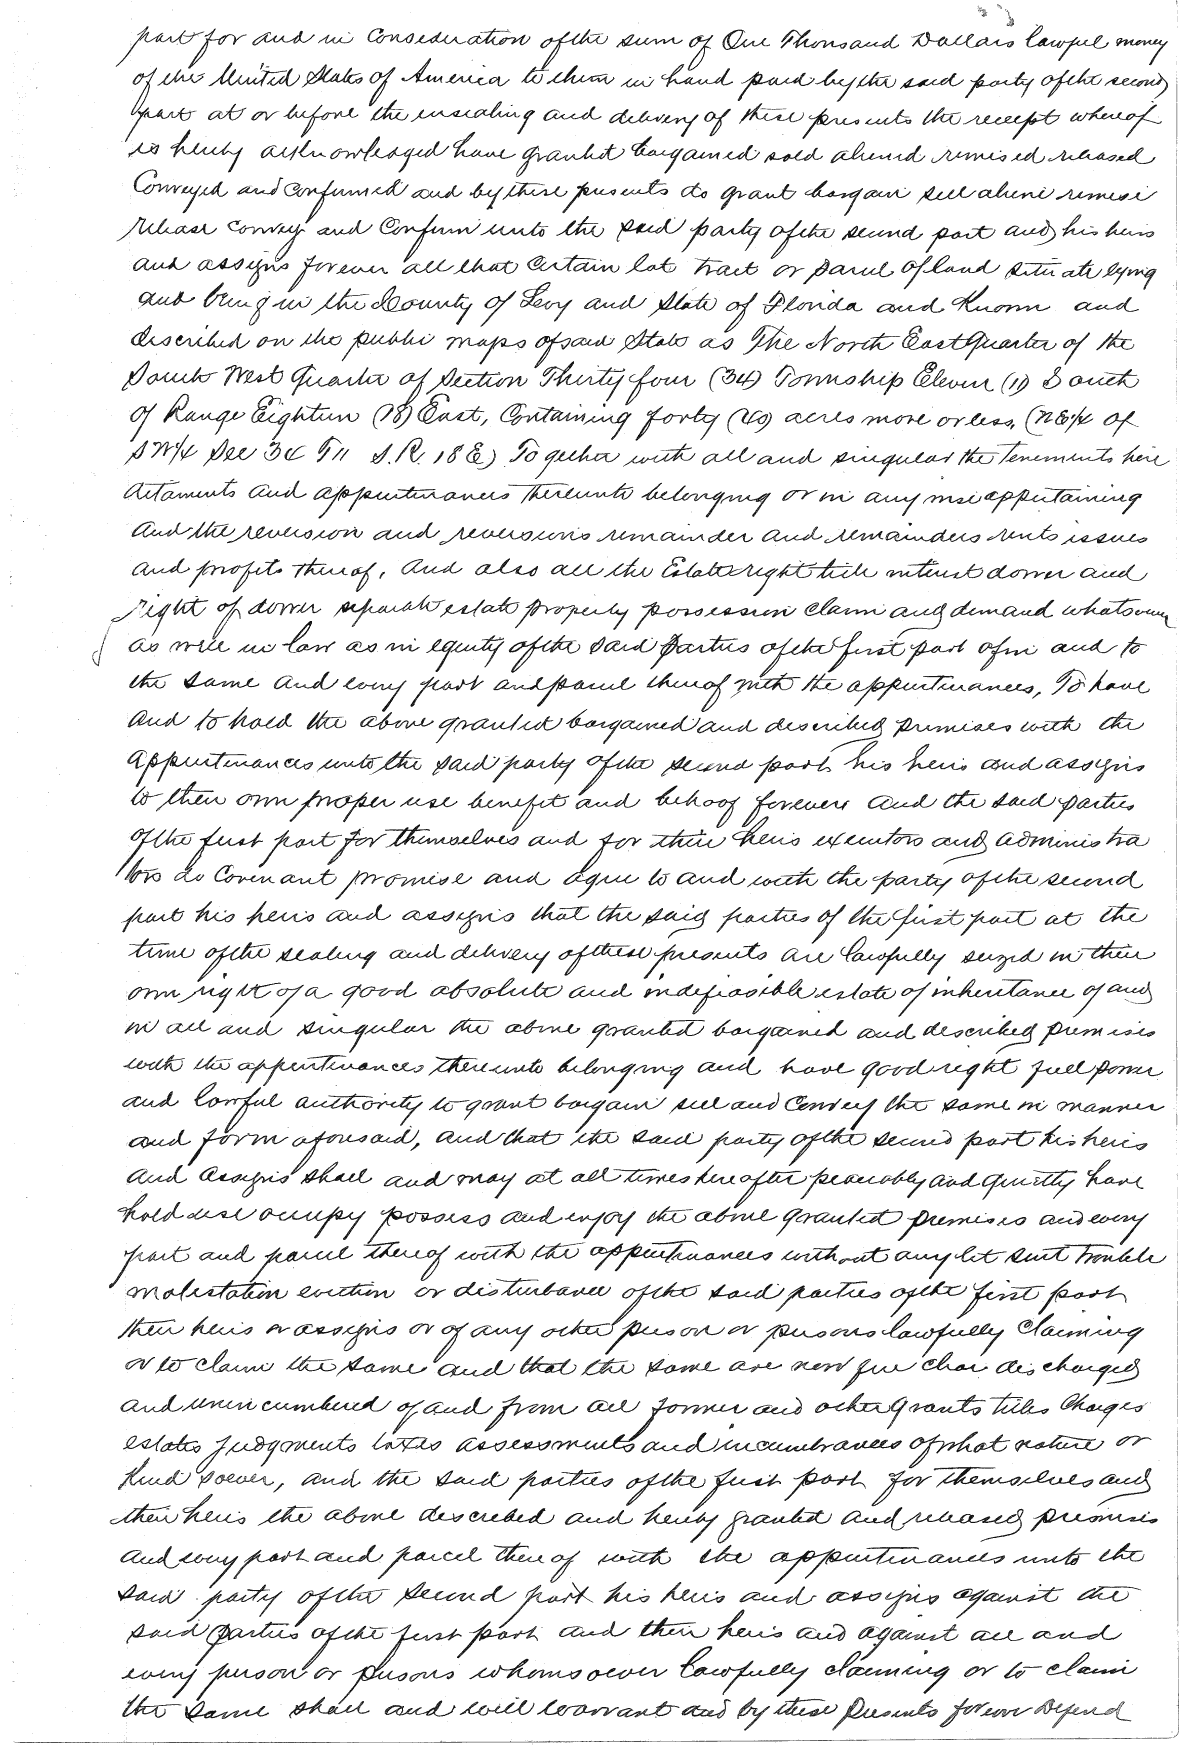 part for and in Consideration of the sum of One Thousand Dollars lawful money
of the United States of America to them in hand paid by the said party of the second
part at or before the ensealing and delivery of these presents the receipt whereof
is hereby acknowledged have granted bargained sold aliened remised released
Conveyed and Confirmed and by these presents do grant bargain sell aliene remise
release convey and Confirm unto the said party of the second part and his heirs
and assigns forever all that certain lot tract or parcel of land situate lying
and being in the County of Levy and State of Florida and Known and
described on the public maps of said State as The North East Quarter of the
South West Quarter of Section Thirty four (34) Township Eleven (11) South
of Range Eighteen (18) East, Containing forty (40) acres more or less, (NE¼ of
SW¼ Sec 34 T11 S.R. 18 E) Together with all and singular the Tenements here
ditaments and appurtenances thereunto belonging or in any wise appertaining
And the reversion and reversions remainder and remainders rents issues
and profits thereof, And also all the Estate right title interest dower and
right of dower separate estate property possession claim and demand whatsoever
as well in law as in equity of the said parties of the first part of in and to
the same and every part and parcel thereof with the appurtenances, To have
and to hold the above granted bargained and described premises with the
appurtenances unto the said party of the second part his heirs and assigns
to their own proper use benefit and behoof forever And the said parties
of the first part for themselves and for their heirs executors and administra
tors do Covenant promise and agree to and with the party of the second
part his heirs and assigns that the said parties of the first part at the
time of the sealing and delivery of these presents are lawfully seized in their
own right of a good absolute and indefeasible estate of inheritance of and
in all and singular the above granted bargained and described premises
with the appurtenances thereunto belonging and have good right full power
and lawful authority to grant bargain sell and Convey the same in manner
and form aforesaid, and that the said party of the second part his heirs
and assigns shall and may at all times hereafter peaceably and quietly have
hold use occupy possess and enjoy the above granted premises and every
part and parcel thereof with the appurtenances without any let suit trouble
molestation eviction or disturbance of the said parties of the first part
their heirs or assigns or of any other person or persons lawfully claiming
or to claim the same and that the same are now free clear discharged
and unincumbered of and from all former and other grants titles Charges
estates judgments taxes assessments and incumbrances of what nature or
kind soever, and the said parties of the first part for themselves and
their heirs the above described and hereby granted and released premises
and every part and parcel thereof with the appurtenances unto the
said party of the second part his heirs and assigns against the
said parties of the first part and their heirs and against all and
every person or persons whomsoever lawfully claiming or to claim
the same shall and will warrant and by these presents forever Defend